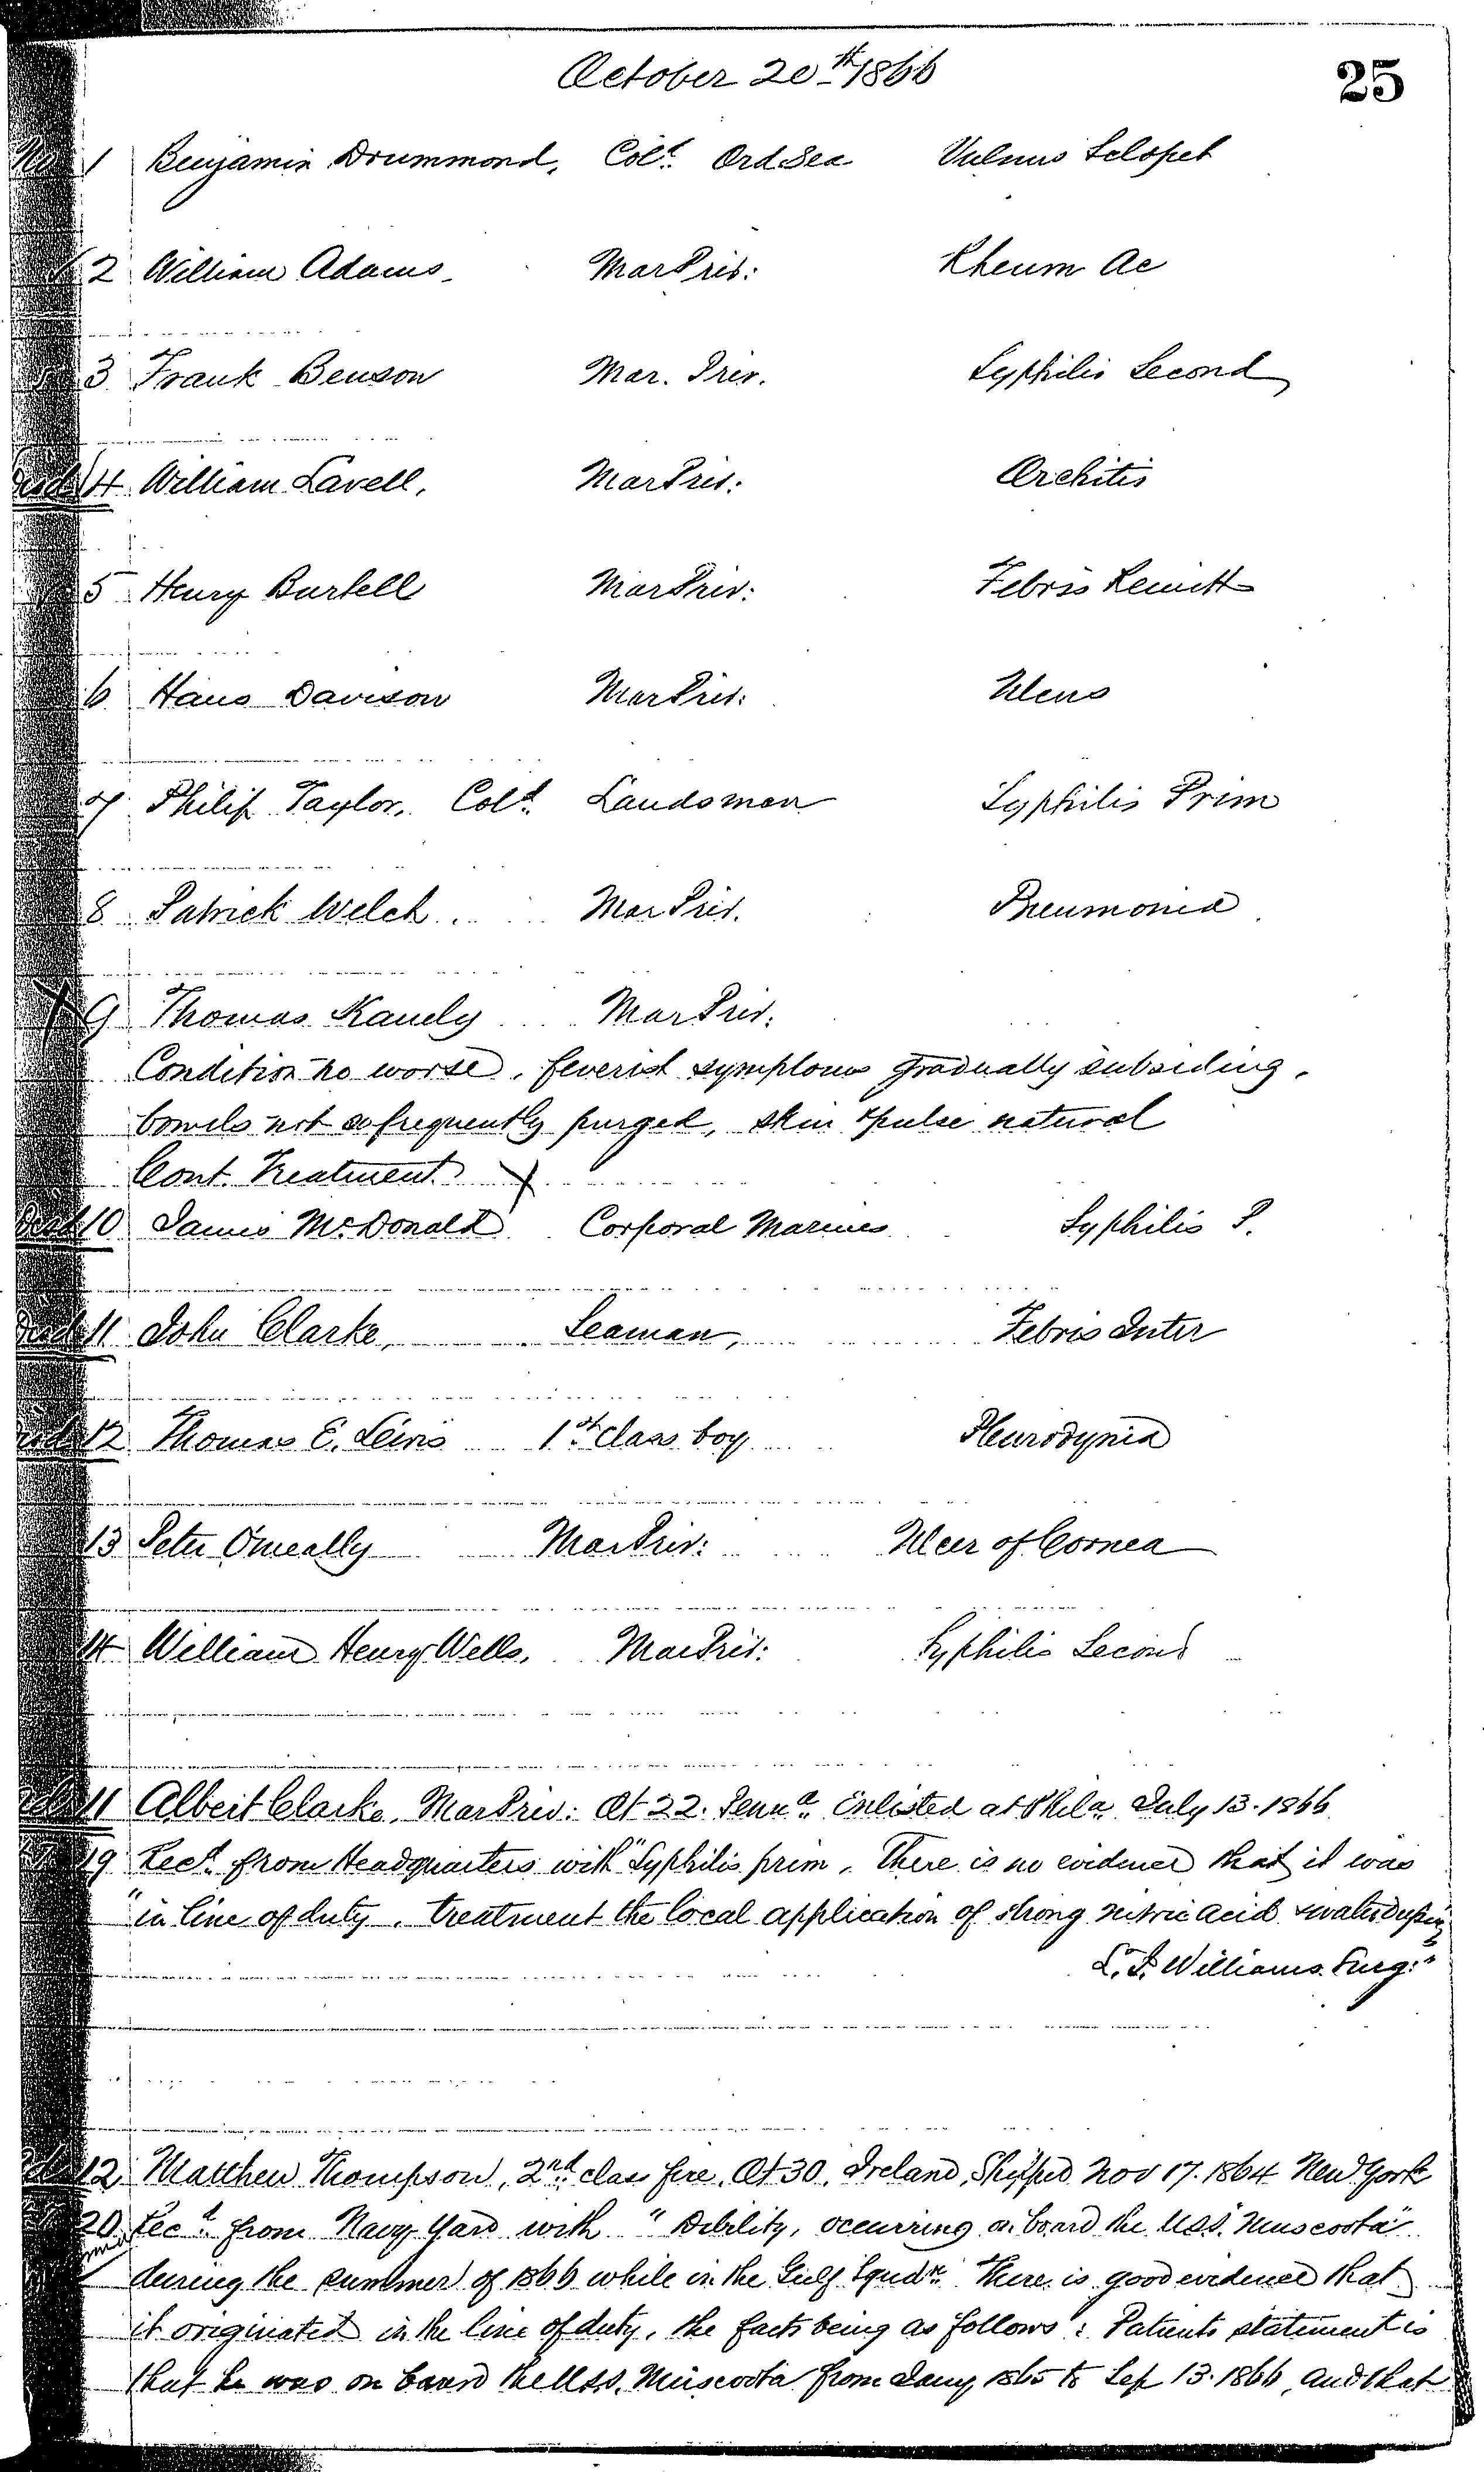 October 20th 1866
25
No 1 Benjamin Drummond, Cold. Ord Sea Vulnus Sclopet
2 William Adams Mar Priv: Rheum Ac
3 Frank Benson Mar. Priv. Syphilis Second
4 William Lavell, Mar Priv: Orchitis
5 Henry Burtell Mar Priv: Febris Remitt
6 Hans Davison Mar Priv: Ulcus
7 Philip Taylor, Cold. Landsman Syphilis Prim
8 Patrick Welch Mar Priv. Pneumonia
9 Thomas Kandy Mar Priv:
Condition no worse, feverish symptoms gradually subsiding,
bowels not so frequently purged, skin & pulse natural
Cont. Treatment
10 James McDonald Corporal Marines Syphilis P.
11 John Clarke, Seaman, Febris Inter
12 Thomas E. 1st class boy Pleurodynia
13 Peter Omeally Mar Priv: Ulcer of Cornea
14 William Henry Wells, Mar Priv: Syphilis Second
11 Albert Clarke, Mar Priv: At 22. Penna. Enlisted at Phila July 13. 1866
19 Recd. from Headquarters with "Syphilis prim. There is no evidence that it was
"in line of duty. treatment the local application of strong nitric acid & water dressing
L. J. Williams. Surg:"
12 Matthew Thompson, 2nd class fire, At 30, Ireland, Shipped Nov 17. 1864 New York
20 Recd. from Navy Yard with "Debility, occurring on board the U.S.S. Muscoota"
during the summer of 1866 while in the Gulf Squdn. There is good evidence that
it originated in the line of duty, the facts being as follows: Patients statement is
that he was on board the U.S.S. Muscoota from Jany 1865 to Sep 13. 1866, and that